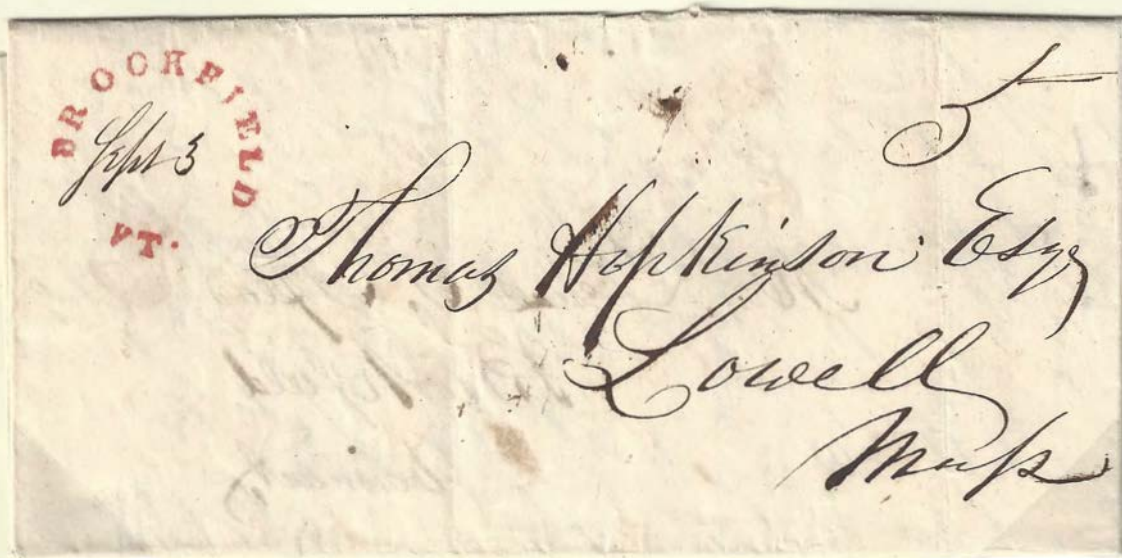 BROOKFIELD
Sept 3
VT.
5
Thomas Hopkinson Esqr
Lowell
Mass